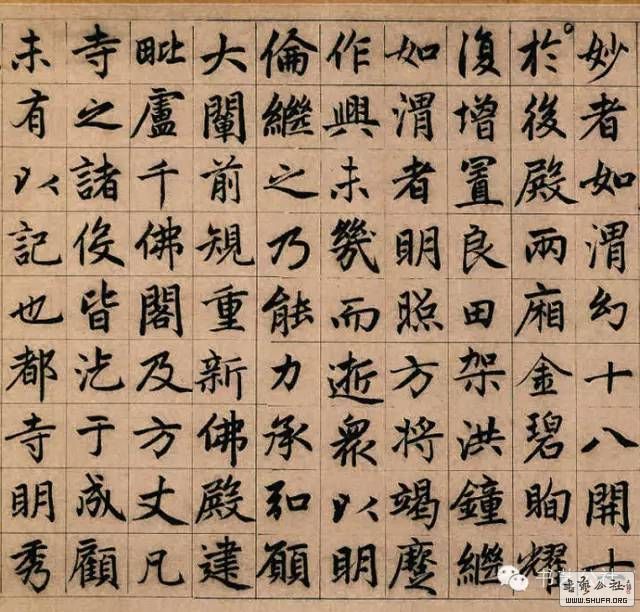 妙者如渭幻十八開士
於後殿兩廂金碧眴耀
復增置良田架洪鐘繼
如渭者明照方將竭麼
作興未幾而逝衆以明
倫繼之乃能力承和願
大闡前規重新佛殿建
毗盧千佛閣及方丈凡
寺之諸役皆汔于成顧
未有以記也都寺明秀
书艺公社
書藝公社
WWW.SHUFA.ORG